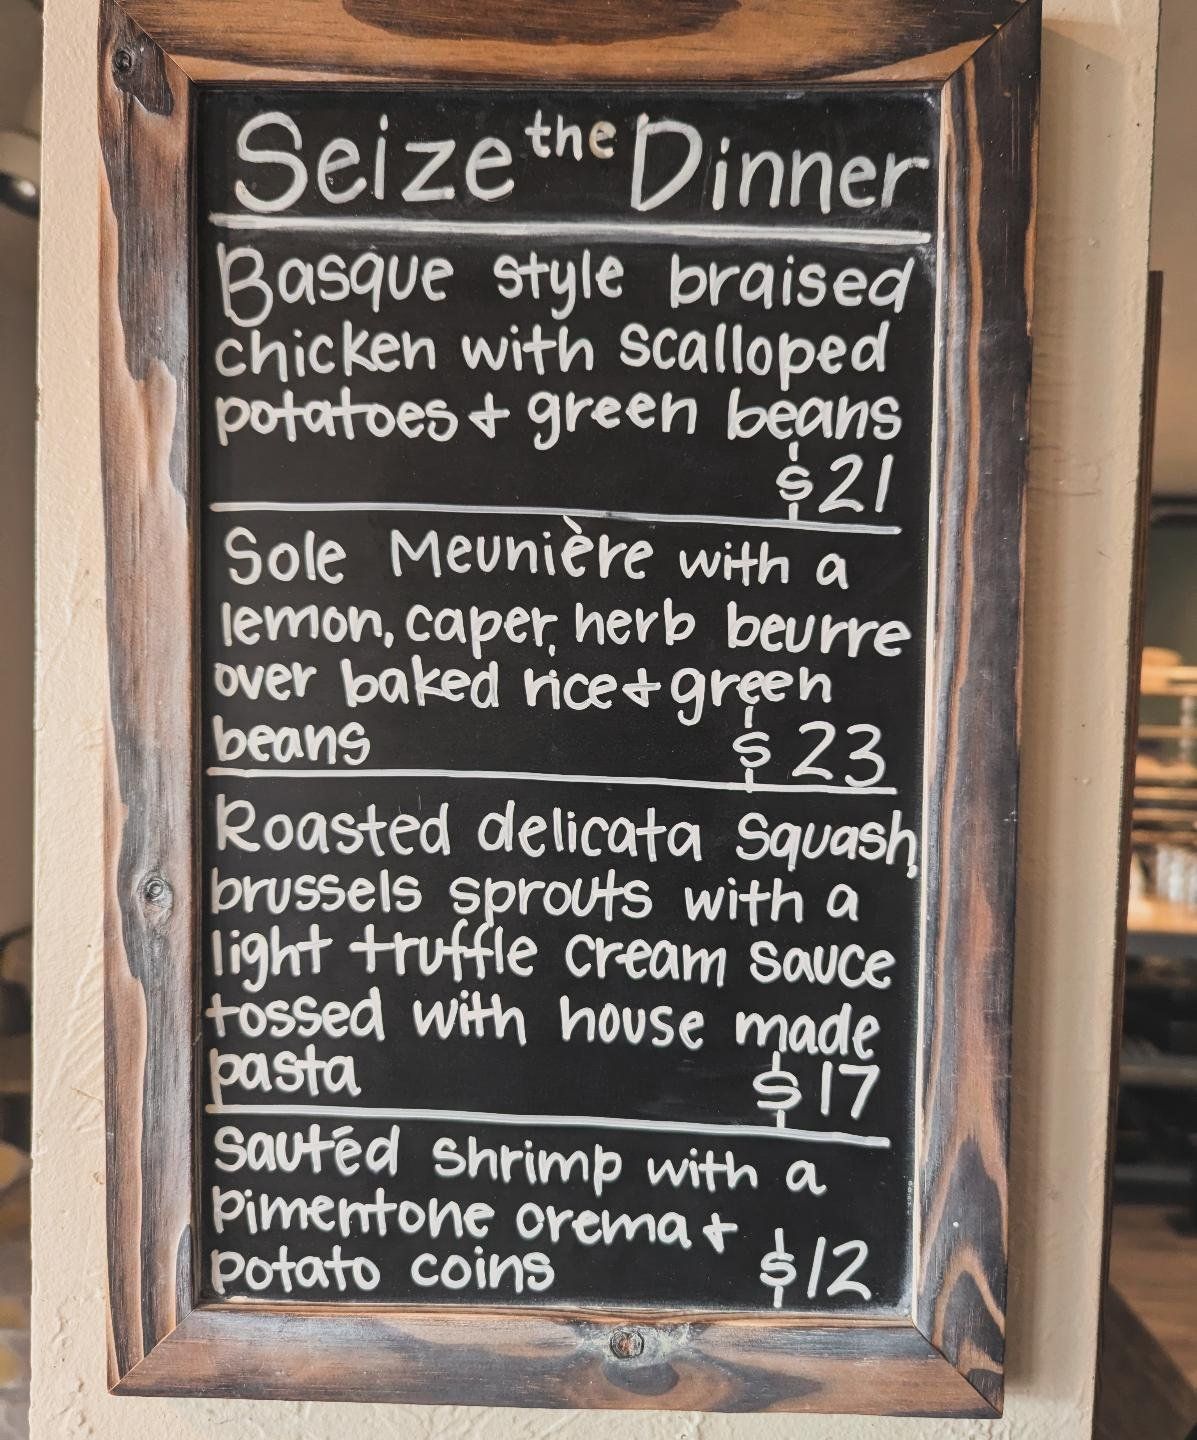 Seize the Dinner
Basque style braised
chicken with scalloped
potatoes + green beans
$21
Sole Meunière with a
lemon, caper, herb beurre
over baked rice + green
beans $23
Roasted delicata squash,
brussels sprouts with a
light truffle cream sauce
tossed with house made
pasta $17
Sautéd shrimp with a
pimentone crema +
potato coins $12